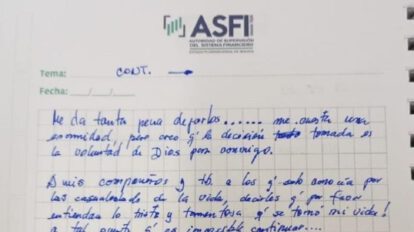 ASFI
AUTORIDAD DE SUPERVISIÓN
DEL SISTEMA FINANCIERO
Tema: CONT. →
Fecha: __/__/__
Me da tanta pena dejarlos...... me cuesta una
enormidad, pero creo q' la decisión tomada es
la voluntad de Dios para conmigo.
A mis compañros y tb a los q' solo conocía por
las casualidades de la vida, decirles q' por favor
entiendan lo triste y tormentosa q' se tornó mi vida!
a tal punto q' es imposible continuar...